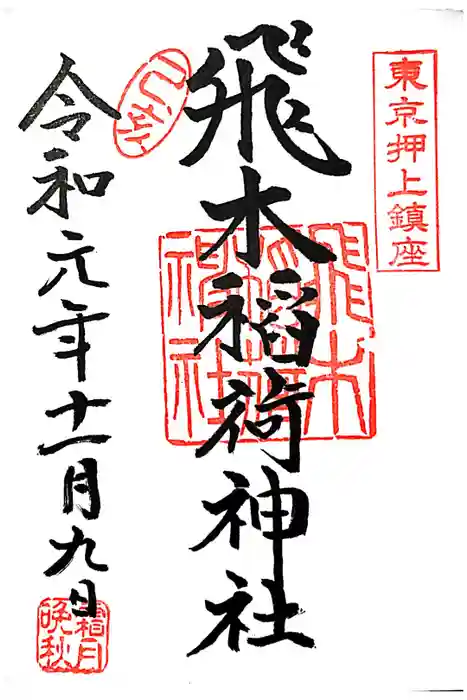 東京押上鎮座
飛木稲荷神社
飛木
稲荷
神社
令和元年十一月九日
霜月
晩秋